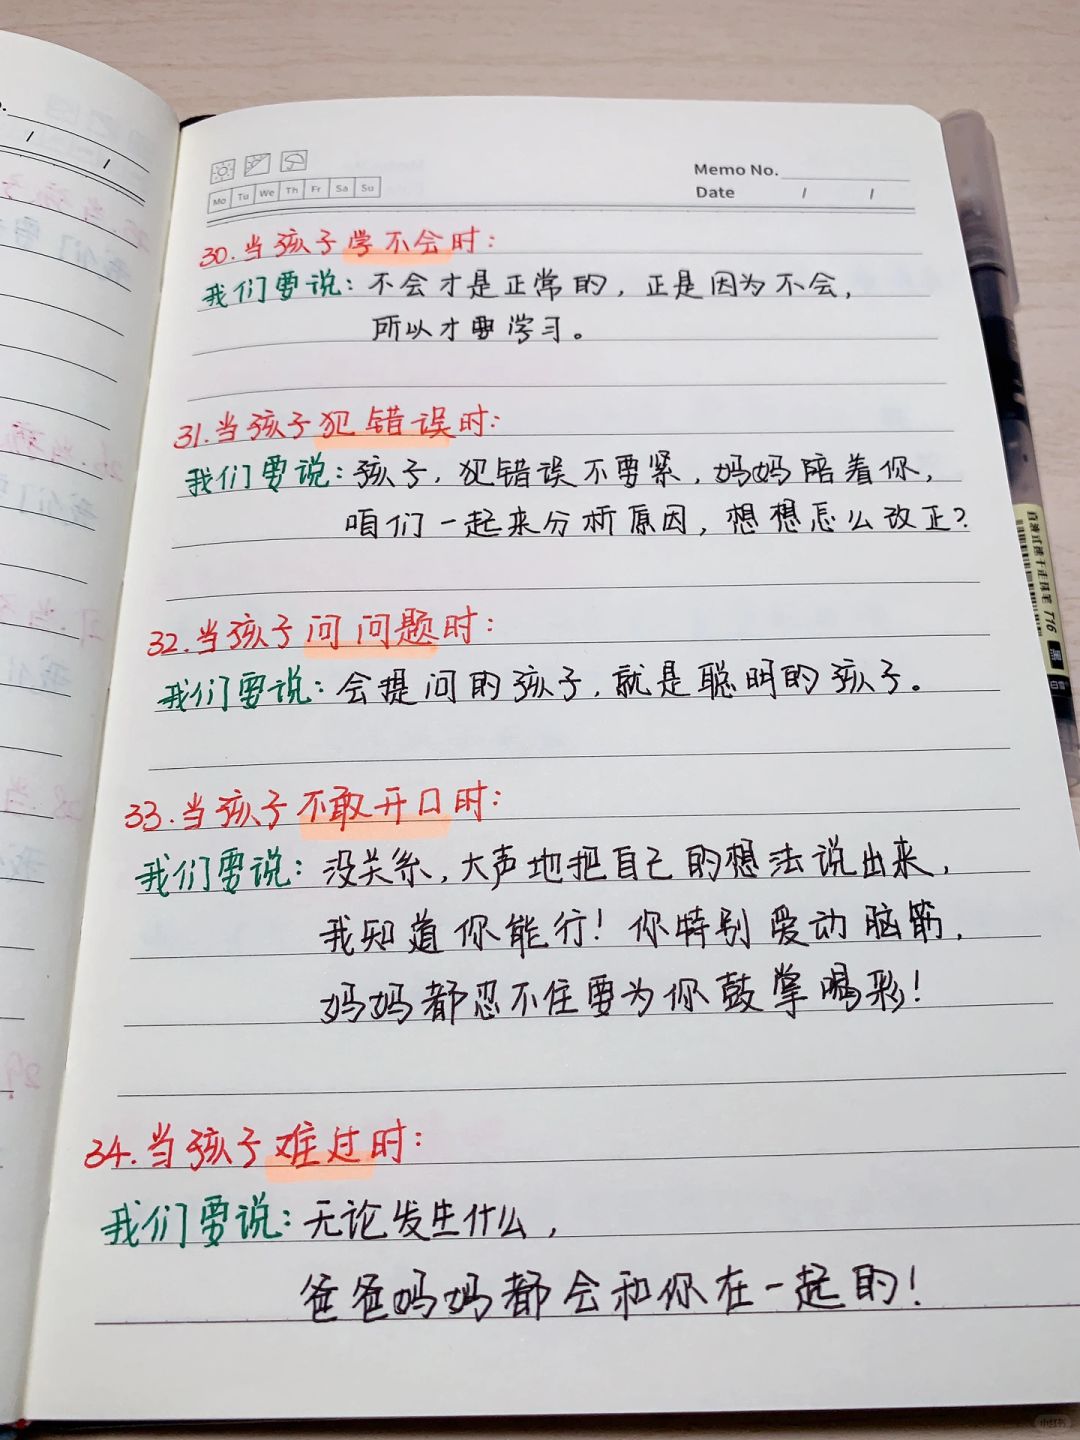 Mo Tu We Th Fr Sa Su
Memo No.
Date / /
30.当孩子学不会时:
我们要说:不会才是正常的,正是因为不会,
所以才要学习。
31.当孩子犯错误时:
我们要说:孩子,犯错误不要紧,妈妈陪着你,
咱们一起来分析原因,想想怎么改正?
32.当孩子问问题时:
我们要说:会提问的孩子,就是聪明的孩子。
33.当孩子不敢开口时:
我们要说:没关系,大声地把自己的想法说出来,
我知道你能行!你特别爱动脑筋,
妈妈都忍不住要为你鼓掌喝彩!
34.当孩子难过时:
我们要说:无论发生什么,
爸爸妈妈都会和你在一起的!
直液式速干走珠笔 T16 黑
小红书